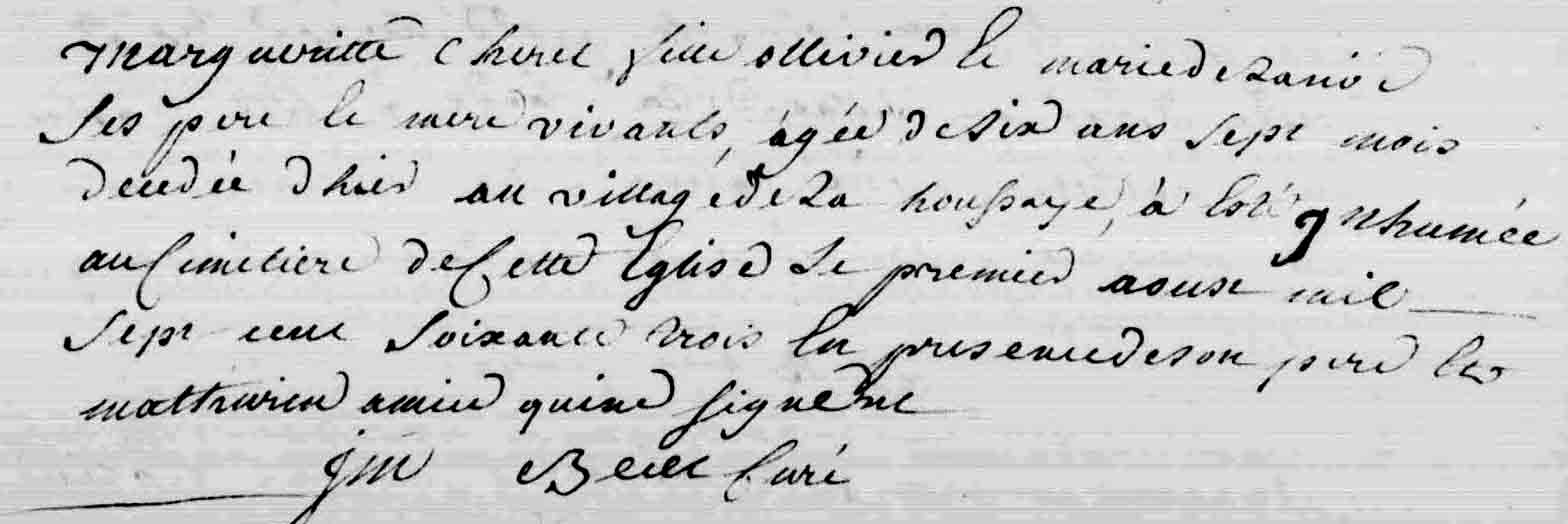 Margueritte Cheret fille ollivier Et marie de Lanoë
Ses pere Et mere vivants, agée de Six ans Sept mois
decedée d'hier au village de La houssaye, à Esté ynhumée
au Cimetiere de Cette Eglise Le premier aoust mil
Sept cent Soixante trois En presence de son pere Et
mathurin amice qui ne signent
JM Curé